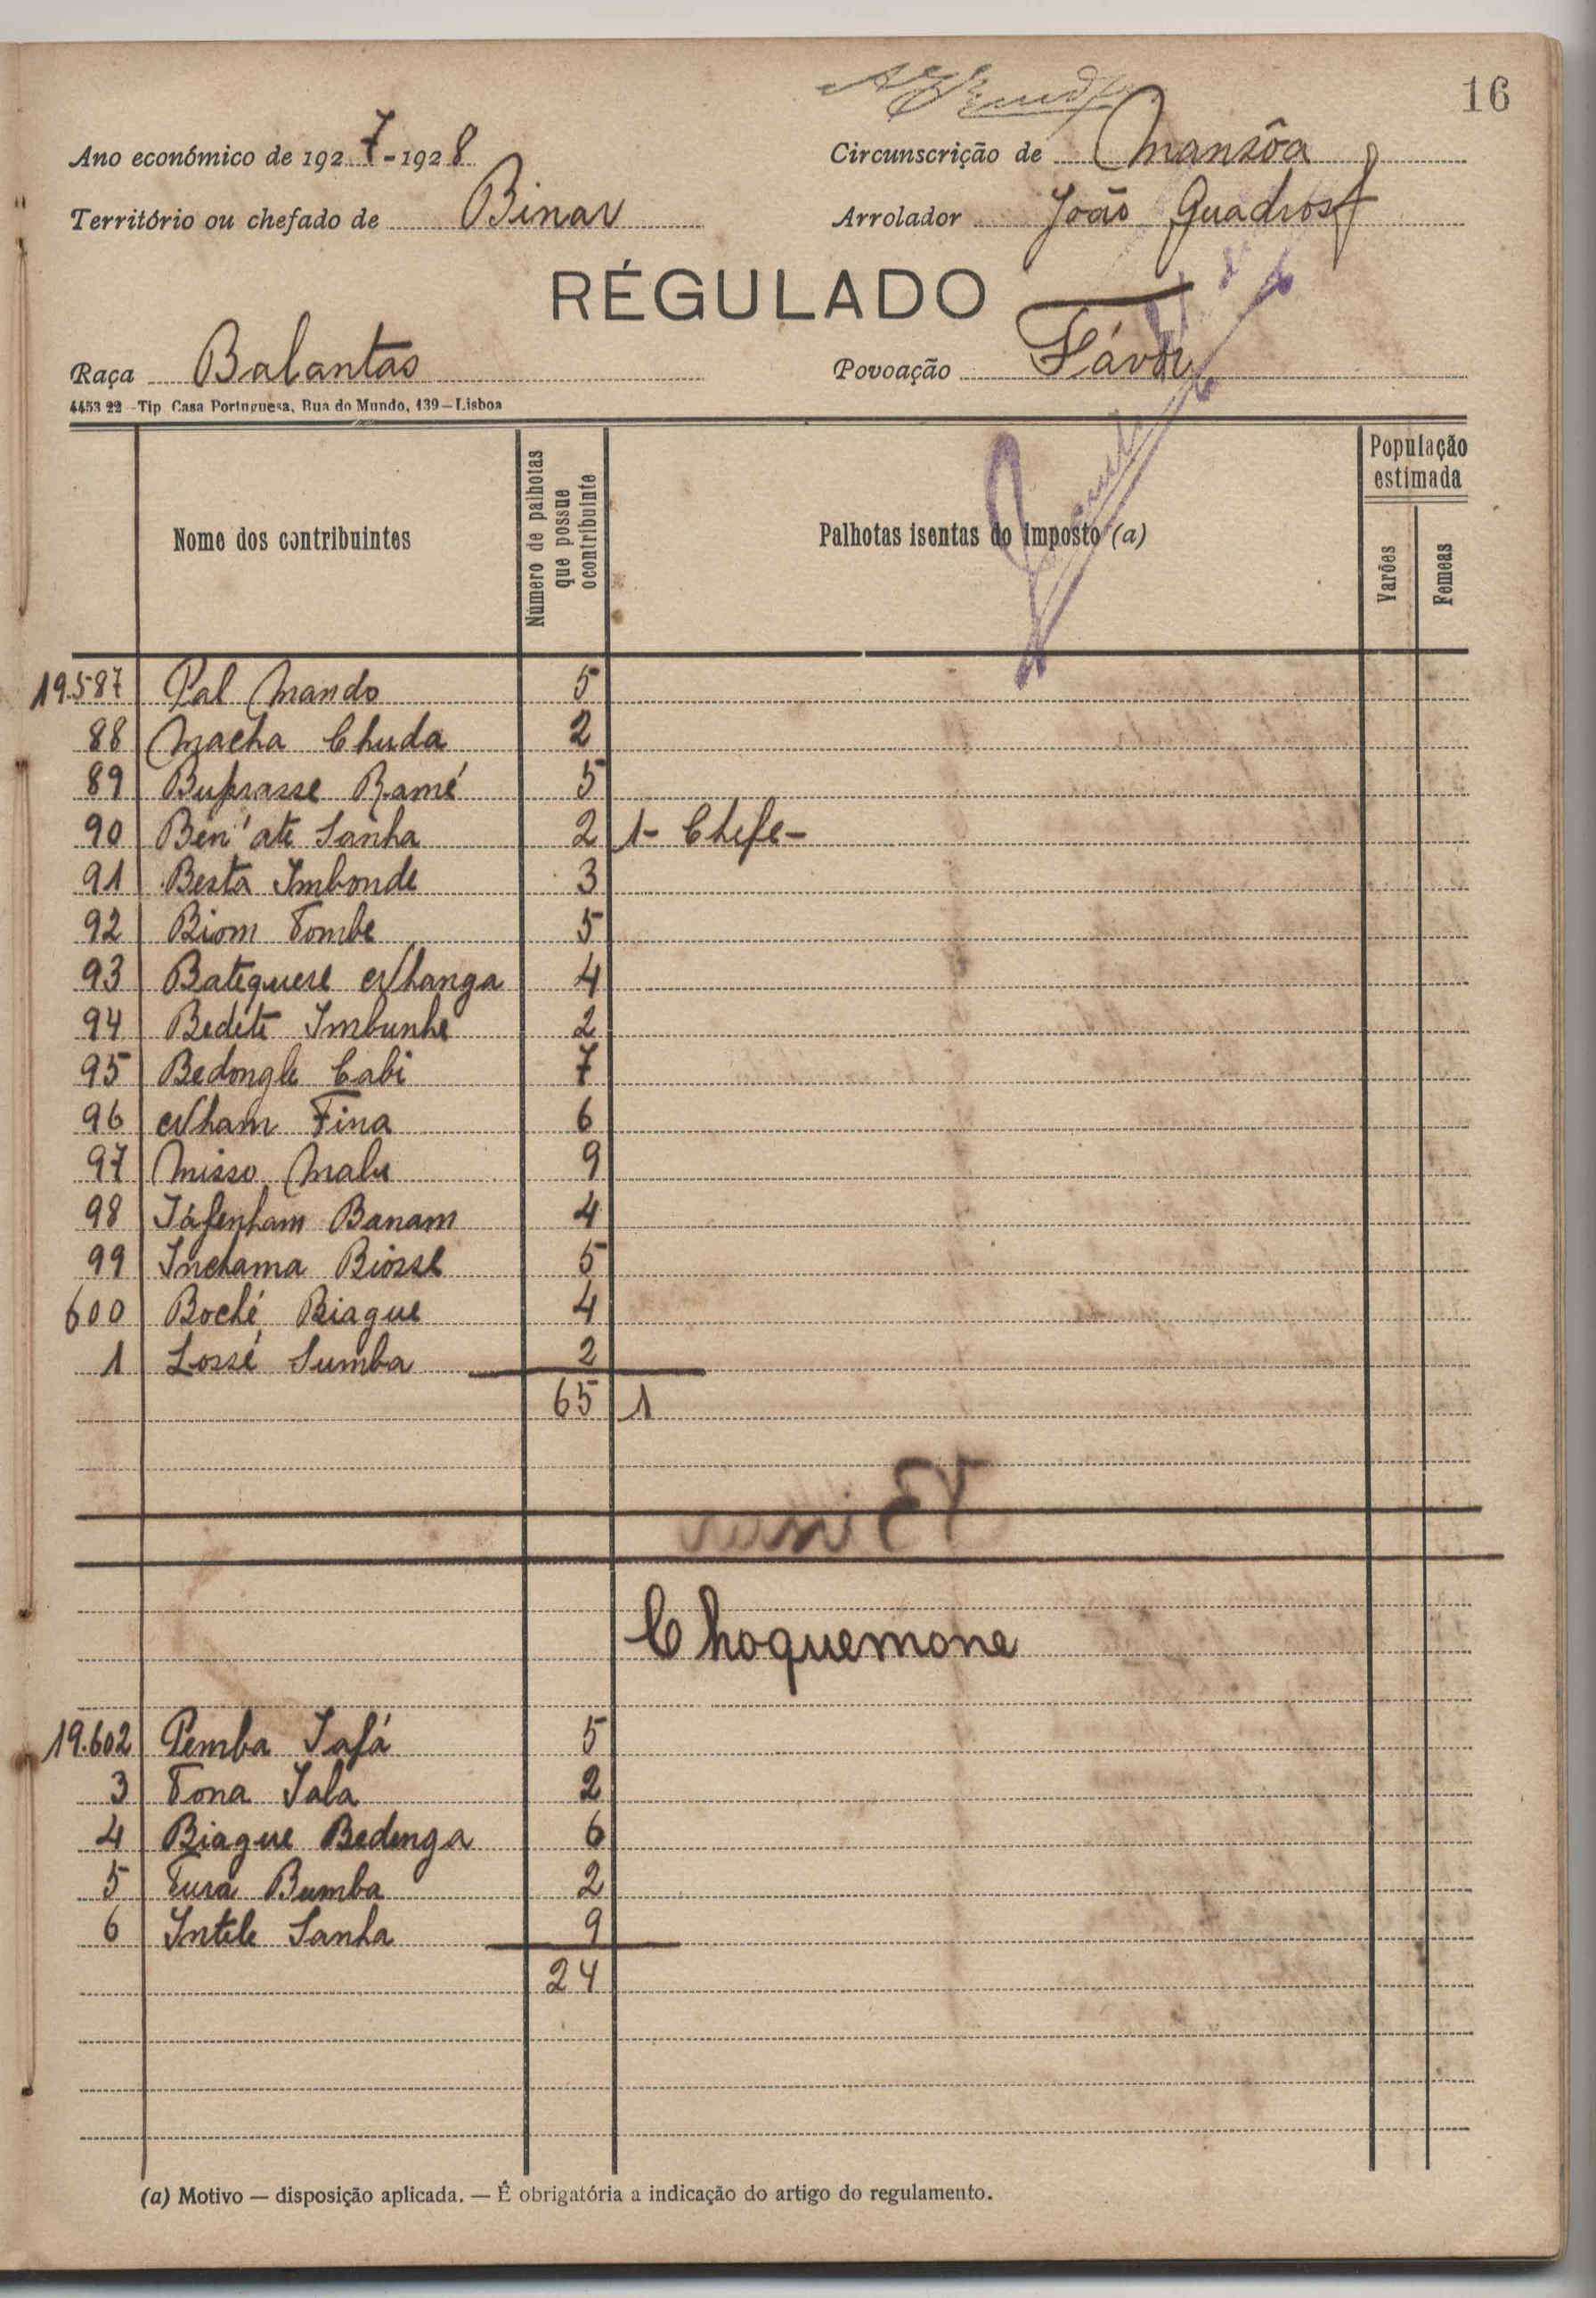 16
Ano económico de 1927-1928
Circunscrição de Mansôa
Território ou chefado de Binar
Arrolador João Quadros
RÉGULADO
Raça Balantas
Povoação
4453 22 - Tip. Casa Portuguesa, Rua do Mundo, 139 - Lisboa
Nome dos contribuintes
Número de palhotas que possue o contribuinte
Palhotas isentas do imposto (a)
População estimada
Varões
Femeas
19.587 Pal Mando 5
88 Macha Chuda 2
89 Buprasse Ramé 5
90 Ben'ate Sanha 2 1- Chefe-
91 Besta Imbonde 3
92 Biom Tombe 5
93 Batequese Nhanga 4
94 Bedéte Imbunhe 2
95 Bedongle Cabi 7
96 Nham Fina 6
97 Misso Malu 9
98 Iáfenham Banam 4
99 Inchama Biosse 5
600 Boché Biague 4
1 Lossé Sumba 2
65 1
Choquemone
19.602 Pemba Iafá 5
3 Tona Iala 2
4 Biague Bedenga 6
5 Tura Bumba 2
6 Intele Sanha 9
24
(a) Motivo — disposição aplicada. — É obrigatória a indicação do artigo do regulamento.